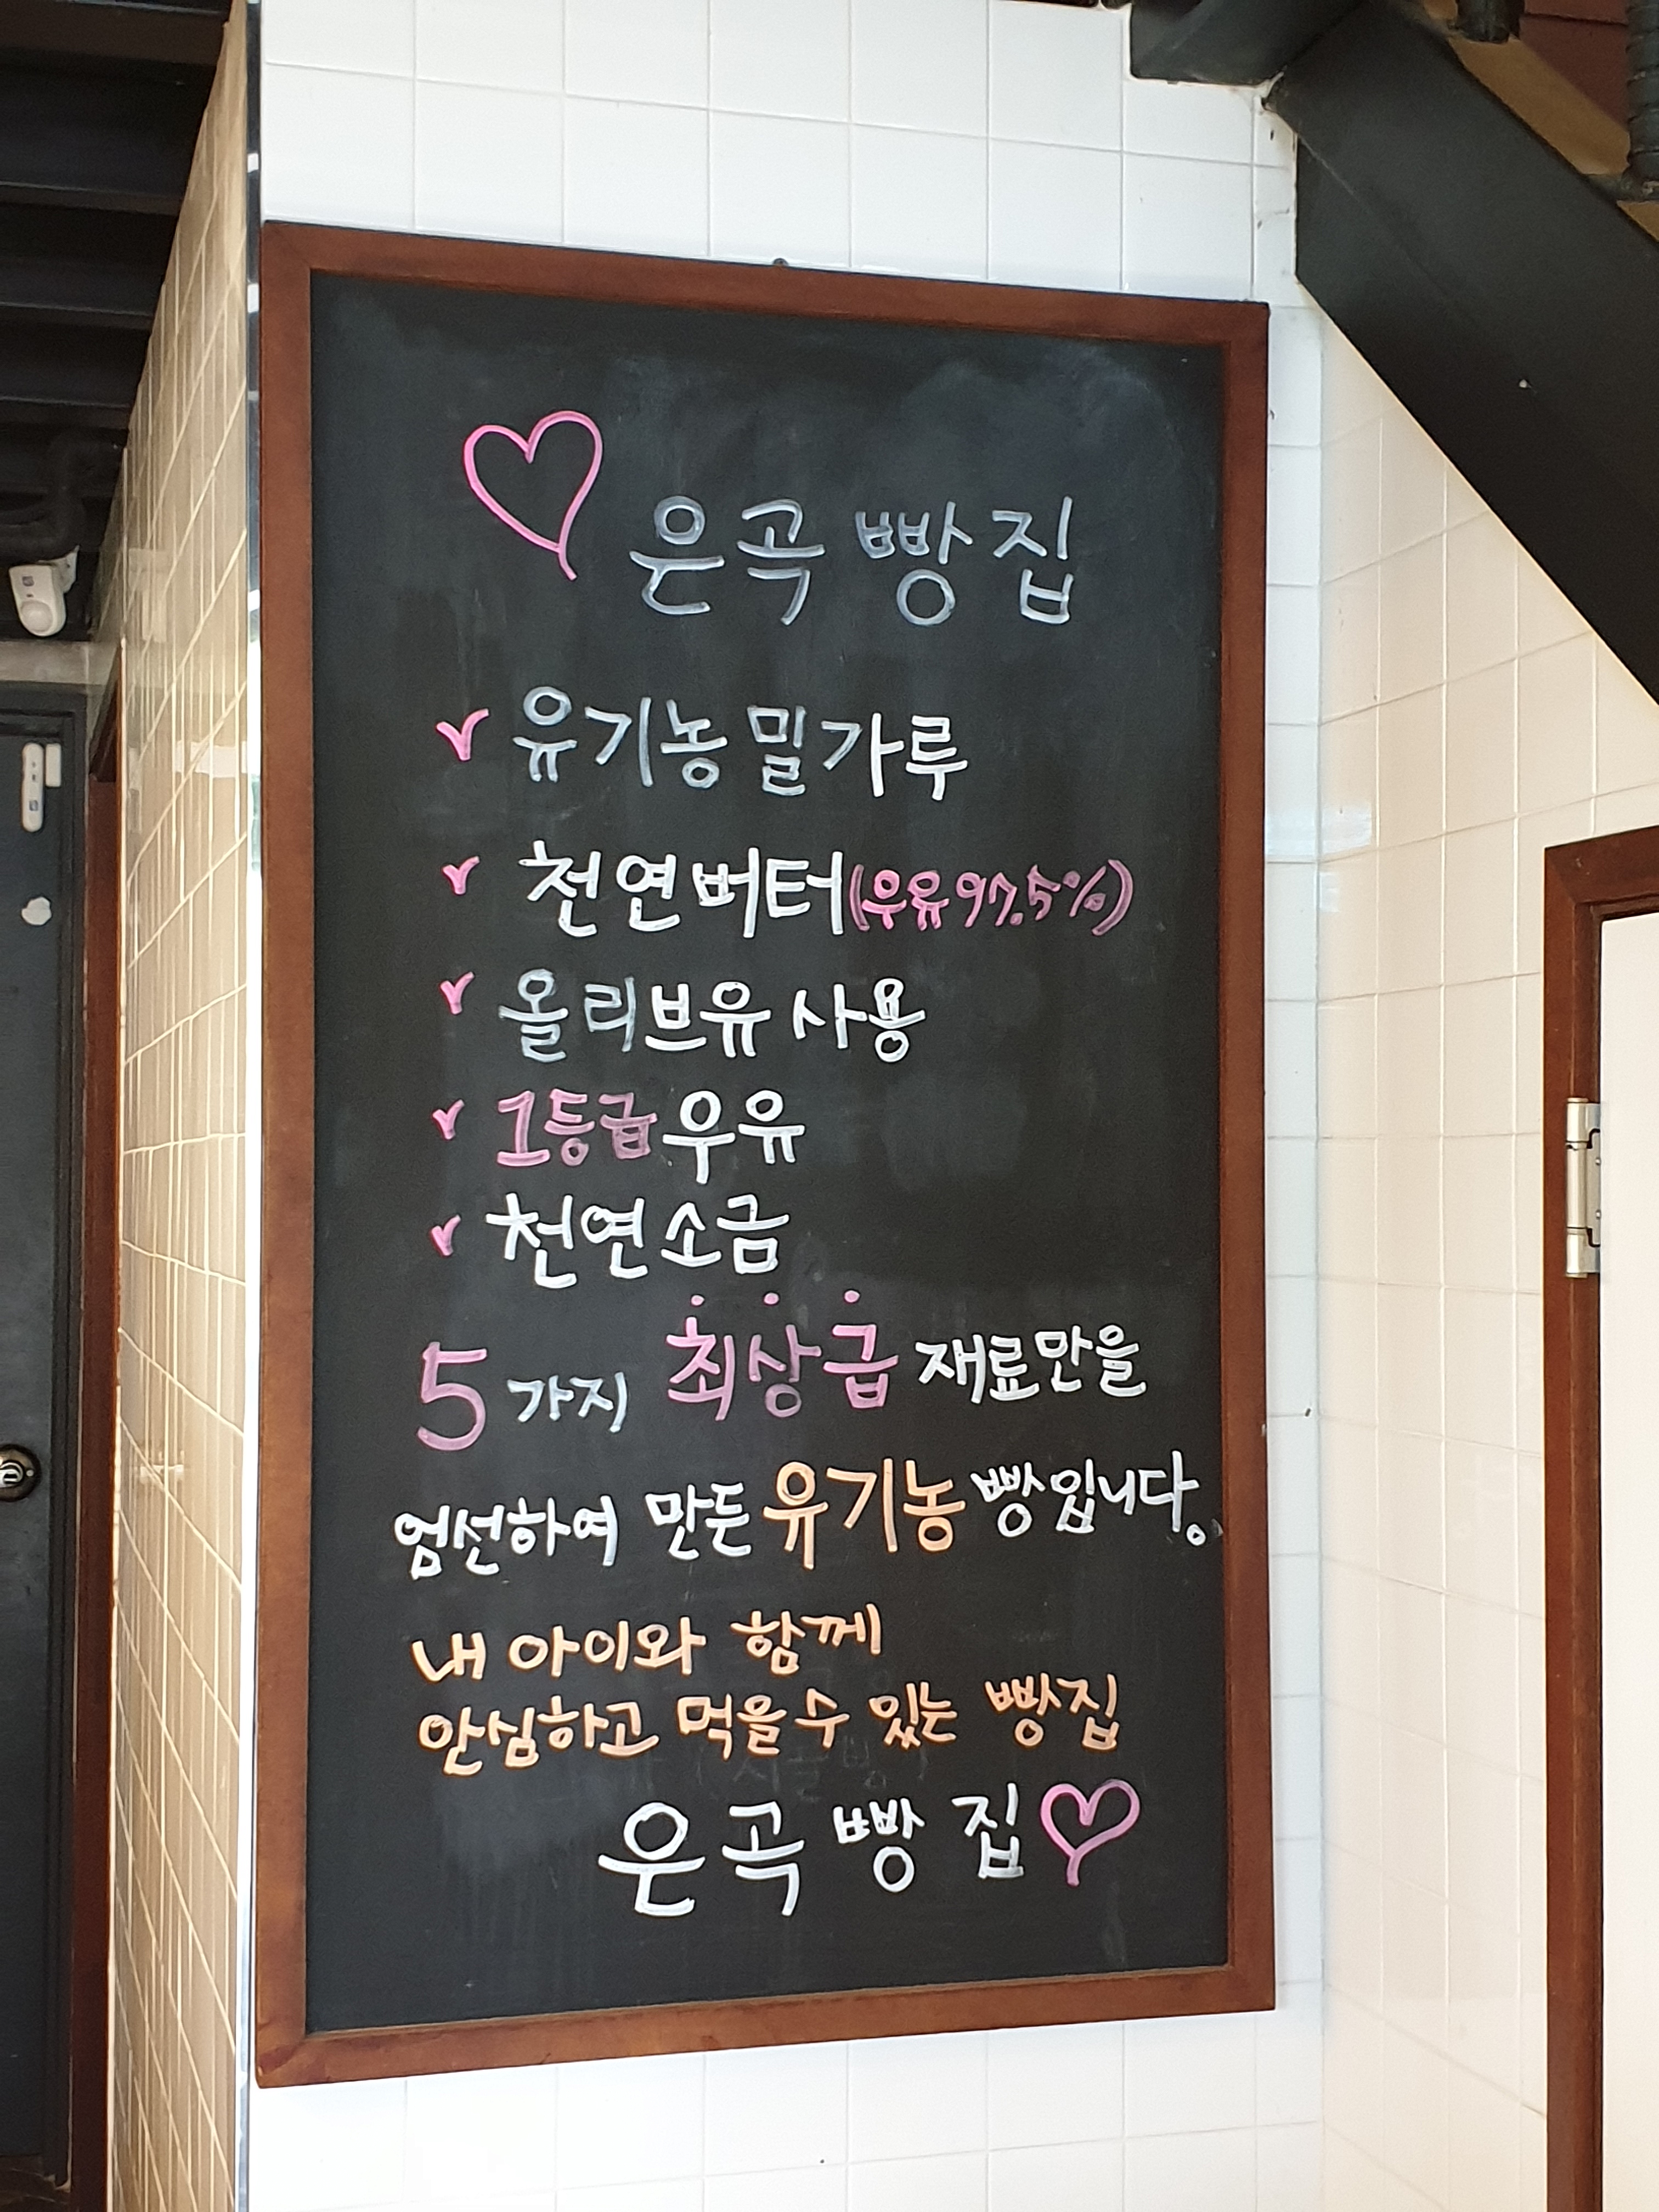 은곡 빵집
유기농 밀가루
천연버터(우유97.5%)
올리브유 사용
1등급 우유
천연소금
5가지 최상급 재료만을
엄선하여 만든 유기농 빵입니다.
내 아이와 함께
안심하고 먹을 수 있는 빵집
은곡 빵집